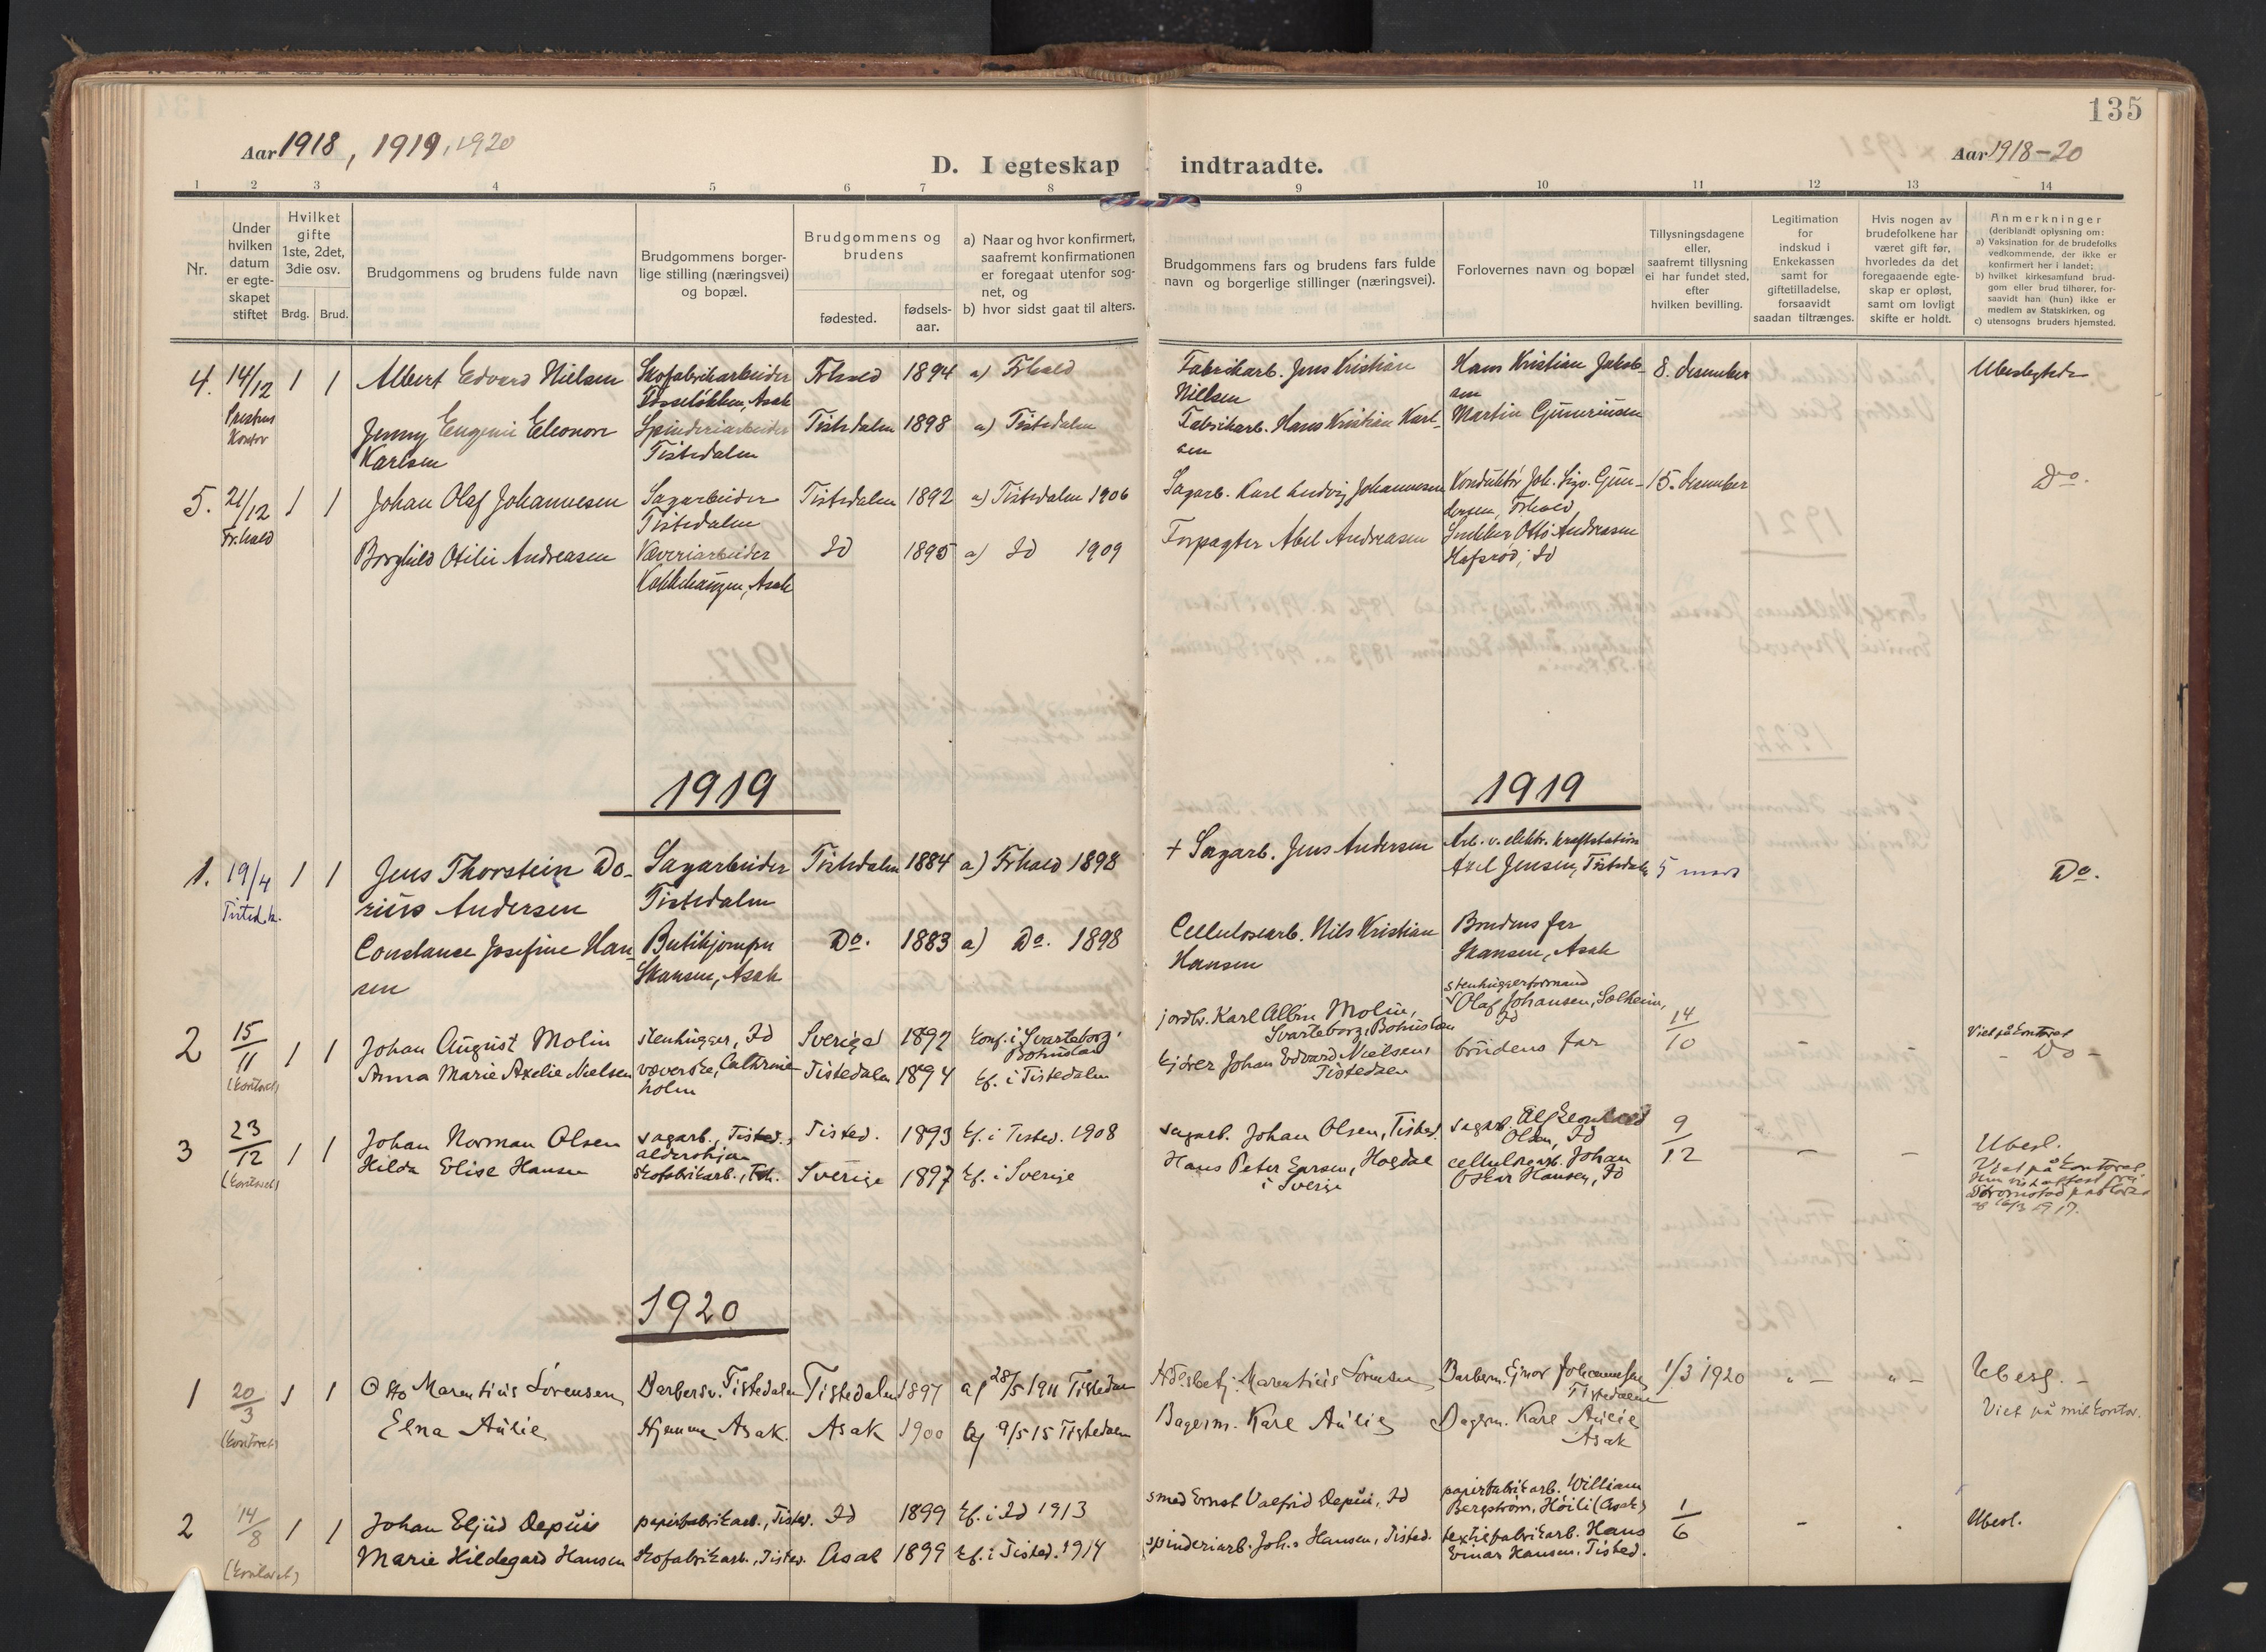 135
Aar 1918, 1919, 1920
Aar 1918-20
D. I egteskap indtraadte.
1 2 3 4 5 6 7 8 9 10 11 12 13 14
Nr.
Under
hvilken
datum
er egte-
skapet
stiftet
Hvilket
gifte
1ste, 2det,
3die osv.
Brdg. Brud.
Brudgommens og brudens fulde navn
Brudgommens borger-
lige stilling (næringsvei)
og bopæl.
Brudgommens og
brudens
fødested.
fødsels-
aar.
a) Naar og hvor konfirmert,
saafremt konfirmationen
er foregaat utenfor sog-
net, og
b) hvor sidst gaat til alters.
Brudgommens fars og brudens fars fulde
navn og borgerlige stillinger (næringsvei).
Forlovernes navn og bopæl
Tillysningsdagene
eller,
saafremt tillysning
ei har fundet sted,
efter
hvilken bevilling.
Legitimation
for
indskud i
Enkekassen
samt for
giftetilladelse,
forsaavidt
saadan tiltrænges.
Hvis nogen av
brudefolkene har
været gift før,
hvorledes da det
foregaaende egte-
skap er opløst,
samt om lovligt
skifte er holdt.
Anmerkninger
(deriblandt oplysning om:
a) Vaksination for de brudefolks
vedkommende, der ikke er
konfirmert her i landet;
b) hvilket kirkesamfund brud-
gom eller brud tilhører, for-
saavidt han (hun) ikke er
medlem av Statskirken, og
c) utensogns bruders hjemsted.
4. 14/12 1 1 Albert Edvard Nielsen Skofabrikarbeider Frhald 1894 a) Frhald Fabrikarb. Jens Kristian Hans Kristian Jakob- 8. desember Ubeslegtede
Fosseløkken, Asak Nielsen sen
Kontor Jenny Eugenie Eleonore Spinderiarbeider Tistedalen 1898 a) Tistedalen Fabrikarb. Hans Kristian Karl- Martin Guneriusen
Karlsen Tistedalen sen
5. 21/12 1 1 Johan Olaf Johannesen Sagarbeider Tistedalen 1892 a) Tistedalen 1906 Sagarb. Karl Ludvig Johannesen Konduktør Joh. Sigv. Gun- 15. desember Do.
Fr.hald Tistedalen dersen, Frhald
Borghild Otilie Andreasen Væveriarbeider Id 1895 a) Id 1909 Forpagter Abel Andreasen Snekker Otto Andreasen
Kollehaugen, Asak Hafsrød, Id
1919 1919
1. 19/4 1 1 Jens Thorstein Do- Sagarbeider Tistedalen 1884 a) Frhald 1898 + Sagarb. Jens Andersen Arb. v. elektr. kraftstation
Tisted.k. rius Andersen Tistedalen Axel Jensen, Tistedalen 5 mars Do.
Constance Josefine Han- Butikjomfru Do. 1883 a) Do. 1898 Cellulosearb. Nils Kristian Brudens far
sen Skansen, Asak Hansen Skansen, Asak
2 15/11 1 1 Johan August Molin stenhugger, Id Sverige 1892 konf. i Svarteborg, Bohuslän jordbr. Karl Albin Molin, Svarteborg, Bohuslän stenhuggerformand Olaf Johansen, Solheim, Id 14/10 - - Viet på kontoret
(kontoret) Anna Marie Axelie Nielsen væverske, Cathrineholm Tistedalen 1894 kf. i Tistedalen kjører Johan Edvard Nielsen, Tistedalen brudens far - Do -
3 23/12 1 1 Johan Norman Olsen sagarb., Tisted. Tisted. 1893 kf. i Tisted. 1908 sagarb. Johan Olsen, Tisted. sagarb. Alf Olsen, Id 9/12 - - Ubesl.
(kontoret) Hilda Elise Hansen skofabrikarb., Sverige 1897 kf. i Sverige Hans Peter Larsen, Hogdal i Sverige cellulosearb. Johan Oskar Hansen, Id Viet på kontoret.
1920
1 20/3 1 1 Otto Marentius Sørensen Barbersv. Tistedalen Tistedalen 1897 a) 28/5 1911 Tistedalen Marentius Sørensen Barberm. Ejnar Johannesen Tistedalen 1/3 1920 „ - „ - Ubesl. -
(kontoret) Elna Aulie Hjemme Asak. Asak 1900 a) 9/5 15 Tistedalen Bagerm. Karl Aulie Bagerm. Karl Aulie Asak Viet på mit kontor.
2 14/8 1 1 Johan Eljud Depuis papirfabrikarb., Tisted. Id 1899 kf. i Id 1913 smed Ernst Valfrid Depui, Id papirfabrikarb. William Bergstrøm, Høili (Asak) 1/6 - . Ubesl.
(kontoret) Marie Hildegard Hansen skofabrikarb., Tisted. Asak 1899 kf. i Tisted. 1914 spinderiarb. Joh.s Hansen, Tisted. textilfabrikarb. Hans Einar Hansen, Tisted.